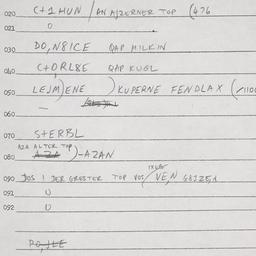 020 C+1HUN / AN AJZERNER TOP (476
021 0
030 DO,N8ICE QAP MILKIN
040 C+ORL8E QAP KUGL
050 LEJM)ENE ) KUPERNE FENDLAX (/1100
—
060
070 S+ERBL
AZA ALTER TOP
080 AZA )-AZAN
IKLAL
090 DOS ! DER GRESTER TOP VOS / VE,N
091 0
092 0